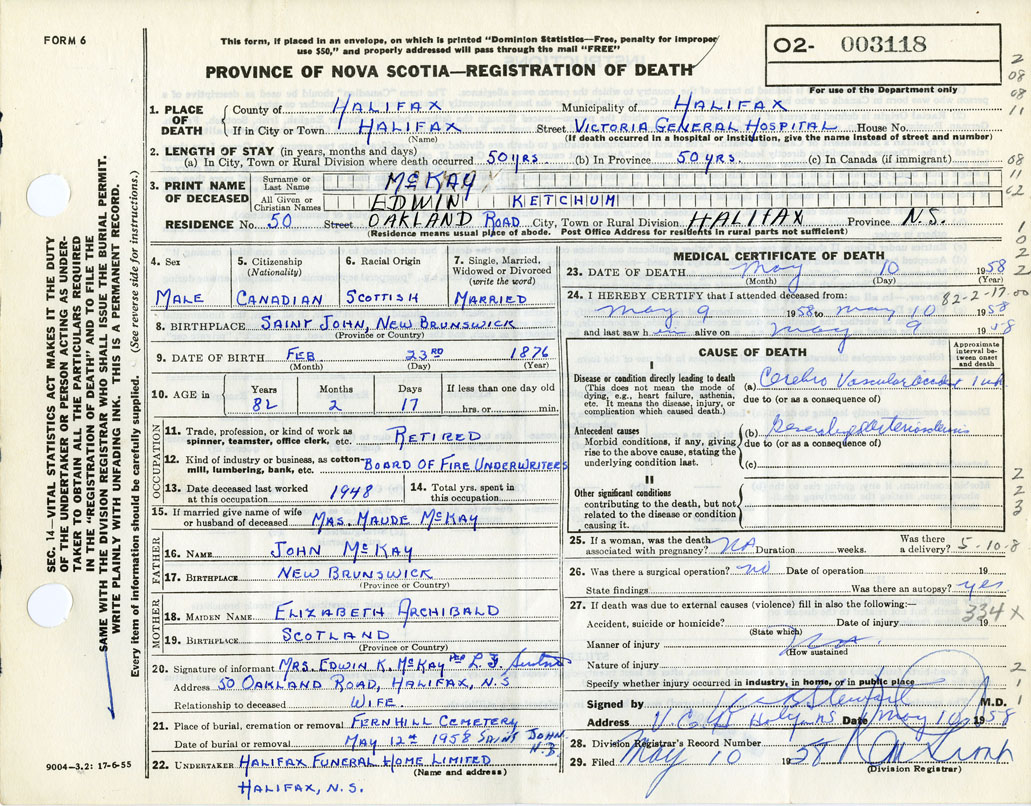 FORM 6
This form, if placed in an envelope, on which is printed "Dominion Statistics—Free, penalty for improper
use $50," and properly addressed will pass through the mail "FREE"
PROVINCE OF NOVA SCOTIA—REGISTRATION OF DEATH
02- 003118
For use of the Department only
1. PLACE OF DEATH County of HALIFAX Municipality of HALIFAX
If in City or Town HALIFAX Street VICTORIA GENERAL HOSPITAL House No.
(Name) (If death occurred in a hospital or institution, give the name instead of street and number)
2. LENGTH OF STAY (in years, months and days)
(a) In City, Town or Rural Division where death occurred 50 YRS. (b) In Province 50 YRS. (c) In Canada (if immigrant)
3. PRINT NAME OF DECEASED Surname or Last Name McKAY
All Given or Christian Names EDWIN KETCHUM
RESIDENCE No. 50 Street OAKLAND ROAD City, Town or Rural Division HALIFAX Province N.S.
(Residence means usual place of abode. Post Office Address for residents in rural parts not sufficient)
4. Sex MALE
5. Citizenship (Nationality) CANADIAN
6. Racial Origin SCOTTISH
7. Single, Married, Widowed or Divorced (write the word) MARRIED
8. BIRTHPLACE SAINT JOHN, NEW BRUNSWICK
(Province or Country)
9. DATE OF BIRTH FEB 23RD 1876
(Month) (Day) (Year)
10. AGE in Years 82 Months 2 Days 17 If less than one day old hrs. or min.
OCCUPATION
11. Trade, profession, or kind of work as spinner, teamster, office clerk, etc. RETIRED
12. Kind of industry or business, as cotton-mill, lumbering, bank, etc. BOARD OF FIRE UNDERWRITERS
13. Date deceased last worked at this occupation 1948
14. Total yrs. spent in this occupation
15. If married give name of wife or husband of deceased MRS. MAUDE McKAY
FATHER
16. NAME JOHN McKAY
17. BIRTHPLACE NEW BRUNSWICK
(Province or Country)
MOTHER
18. MAIDEN NAME ELIZABETH ARCHIBALD
19. BIRTHPLACE SCOTLAND
(Province or Country)
20. Signature of informant MRS. EDWIN K. McKAY
Address 50 OAKLAND ROAD, HALIFAX, N.S
Relationship to deceased WIFE.
21. Place of burial, cremation or removal FERNHILL CEMETERY
SAINT JOHN N.B
Date of burial or removal MAY 12TH 1958
22. UNDERTAKER HALIFAX FUNERAL HOME LIMITED
(Name and address)
HALIFAX, N.S.
MEDICAL CERTIFICATE OF DEATH
23. DATE OF DEATH May 10 1958
(Month) (Day) (Year)
82-2-17
24. I HEREBY CERTIFY that I attended deceased from:
May 9 1958 to May 10 1958
and last saw him alive on May 9 1958
CAUSE OF DEATH
Approximate interval between onset and death
I
Disease or condition directly leading to death
(This does not mean the mode of dying, e.g., heart failure, asthenia, etc. It means the disease, injury, or complication which caused death.)
(a) Cerebro Vascular accident 1 wk
due to (or as a consequence of)
Antecedent causes
Morbid conditions, if any, giving rise to the above cause, stating the underlying condition last.
(b) Generalized Arteriosclerosis
due to (or as a consequence of)
(c)
II
Other significant conditions
contributing to the death, but not related to the disease or condition causing it.
25. If a woman, was the death associated with pregnancy? NA Duration weeks. Was there a delivery?
5-10-8
26. Was there a surgical operation? no Date of operation 19
State findings Was there an autopsy? yes
27. If death was due to external causes (violence) fill in also the following:—
334 X
Accident, suicide or homicide? Date of injury 19
(State which)
Manner of injury
(How sustained
Nature of injury
Specify whether injury occurred in industry, in home, or in public place
Signed by M.D.
Address Date May 10 1958
28. Division Registrar's Record Number
29. Filed May 10 1958
(Division Registrar)
SEC. 14—VITAL STATISTICS ACT MAKES IT THE DUTY
OF THE UNDERTAKER OR PERSON ACTING AS UNDER-
TAKER TO OBTAIN ALL THE PARTICULARS REQUIRED
IN THE "REGISTRATION OF DEATH" AND TO FILE THE
SAME WITH THE DIVISION REGISTRAR WHO SHALL ISSUE THE BURIAL PERMIT.
WRITE PLAINLY WITH UNFADING INK. THIS IS A PERMANENT RECORD.
Every item of information should be carefully supplied. (See reverse side for instructions.)
9004—3.2: 17-6-55